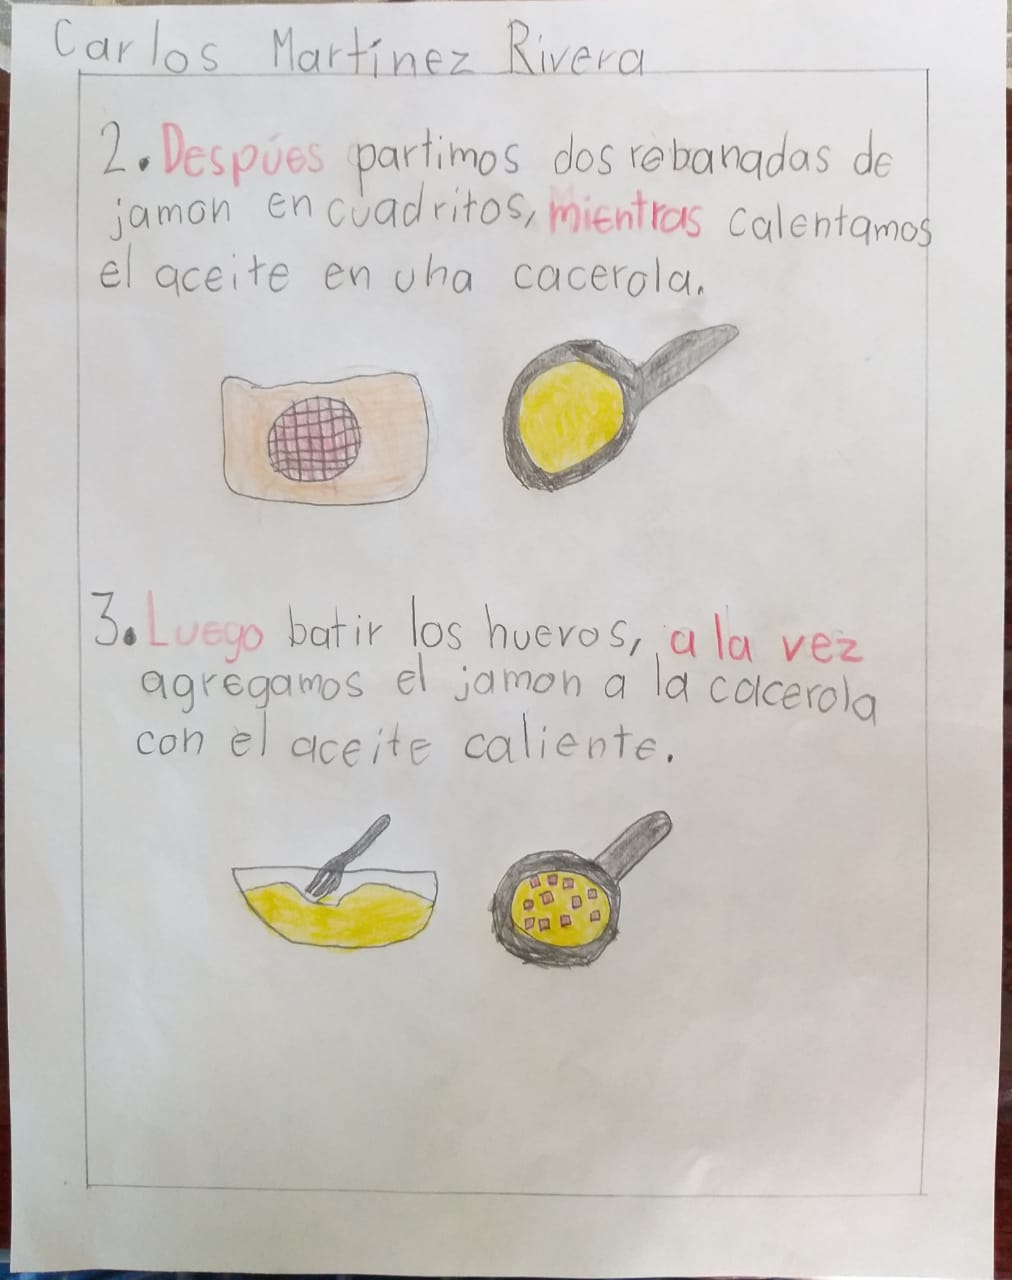 Carlos Martínez Rivera
2. Despúes partimos dos rebanadas de
jamon en cuadritos, mientras calentamos
el aceite en una cacerola.
3. Luego batir los hueros, a la vez
agregamos el jamon a la cacerola
con el aceite caliente.